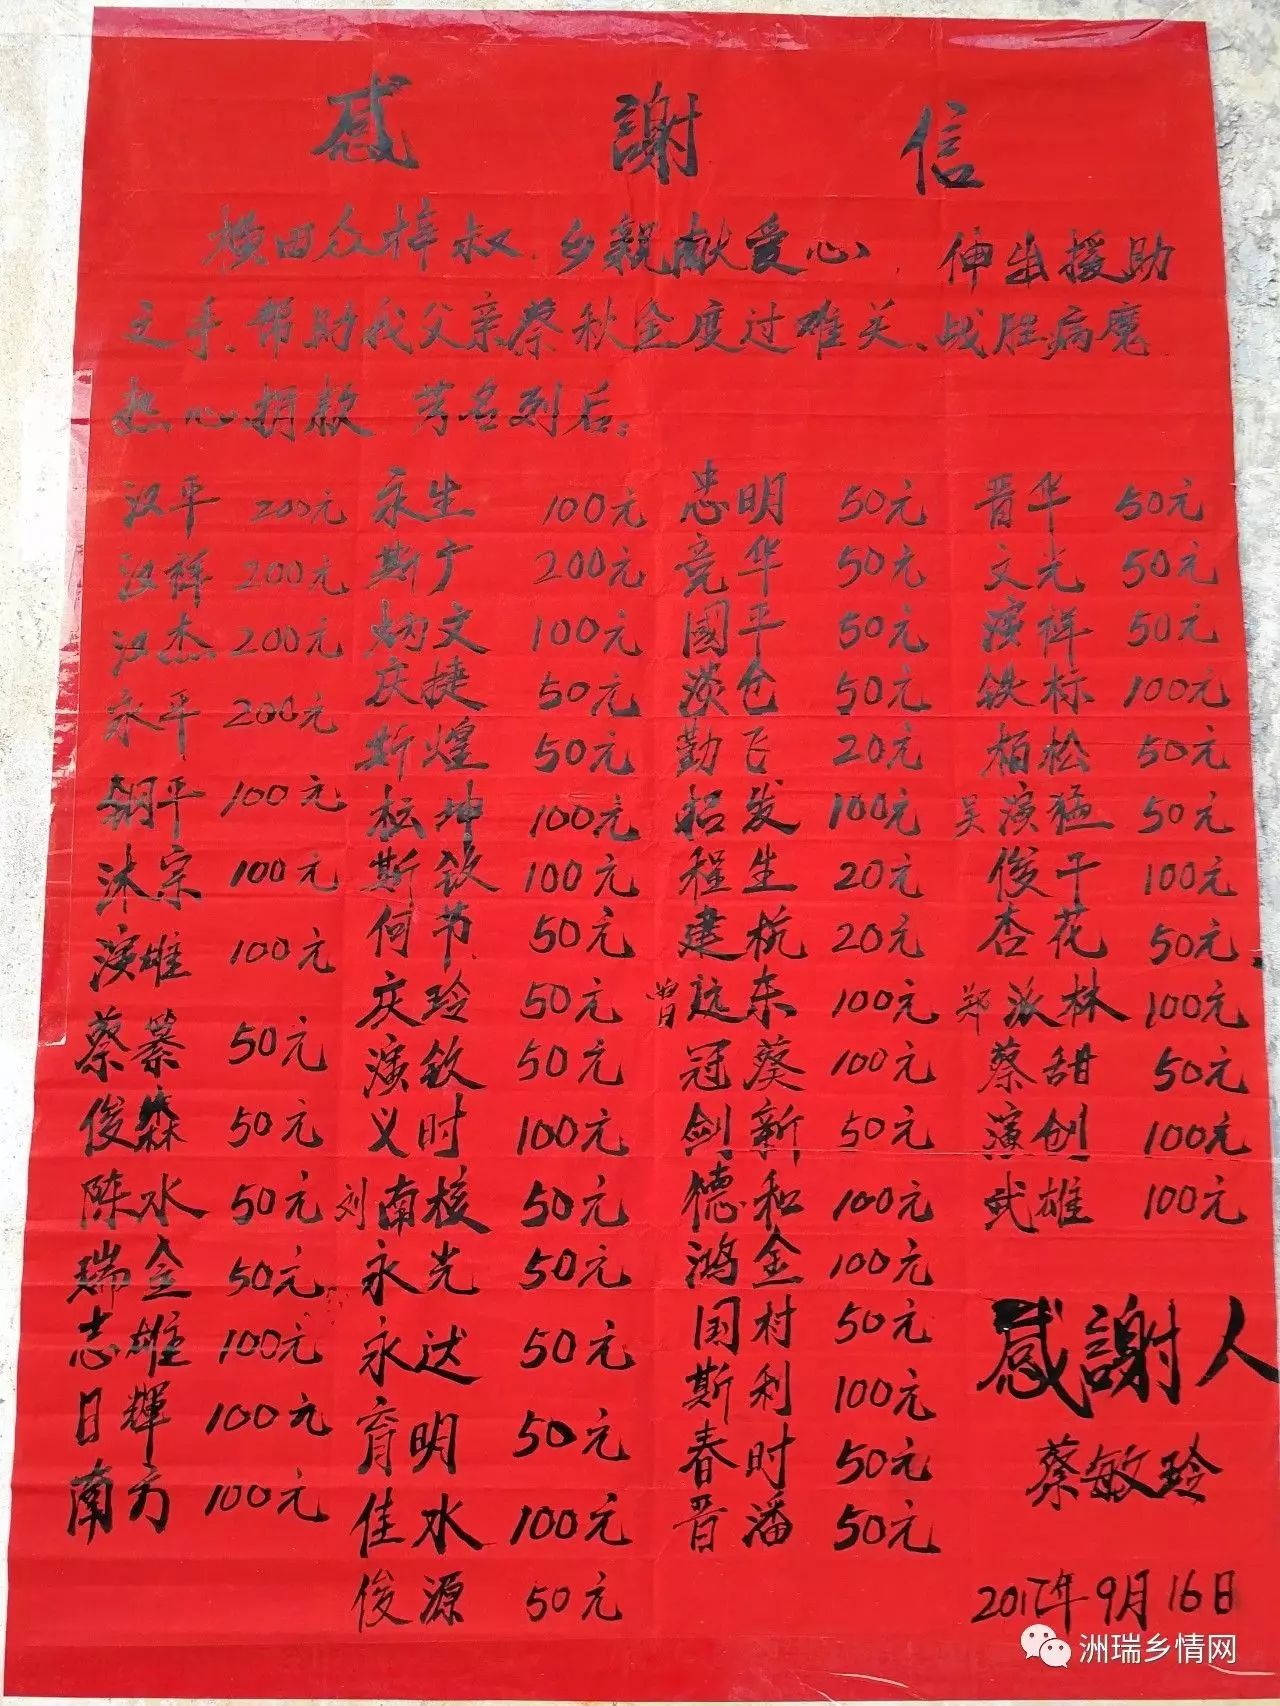 感謝信
横田众梓叔、乡親献爱心，伸出援助
之手、帮助我父亲蔡秋金度过难关、战胜病魔
热心捐款 芳名列后。
汉平 200元 永生 100元 忠明 50元 晋华 50元
汉祥 200元 斯广 200元 竞华 50元 文光 50元
汉杰 200元 炳文 100元 國平 50元 演祥 50元
永平 200元 庆捷 50元 淡仓 50元 铁标 100元
鋼平 100元 斯煌 50元 勤飞 20元 柏松 50元
沐宗 100元 坤 100元 招发 100元 吴演猛 50元
演雄 100元 斯钦 100元 程生 20元 俊干 100元
蔡纂 50元 何节 50元 建杭 20元 杏花 50元
俊森 50元 庆玲 50元 曾远东 100元 郑派林 100元
陈水 50元 演钦 50元 冠葵 100元 蔡甜 50元
瑞金 50元 义时 100元 剑新 50元 演创 100元
志雄 100元 刘南核 50元 德和 100元 武雄 100元
日輝 100元 永光 50元 鸿金 100元
南方 100元 永达 50元 国村 50元
育明 50元 斯利 100元
佳水 100元 春时 50元
俊源 50元 晋潘 50元
感謝人
蔡敏玲
2017年9月16日
洲瑞乡情网